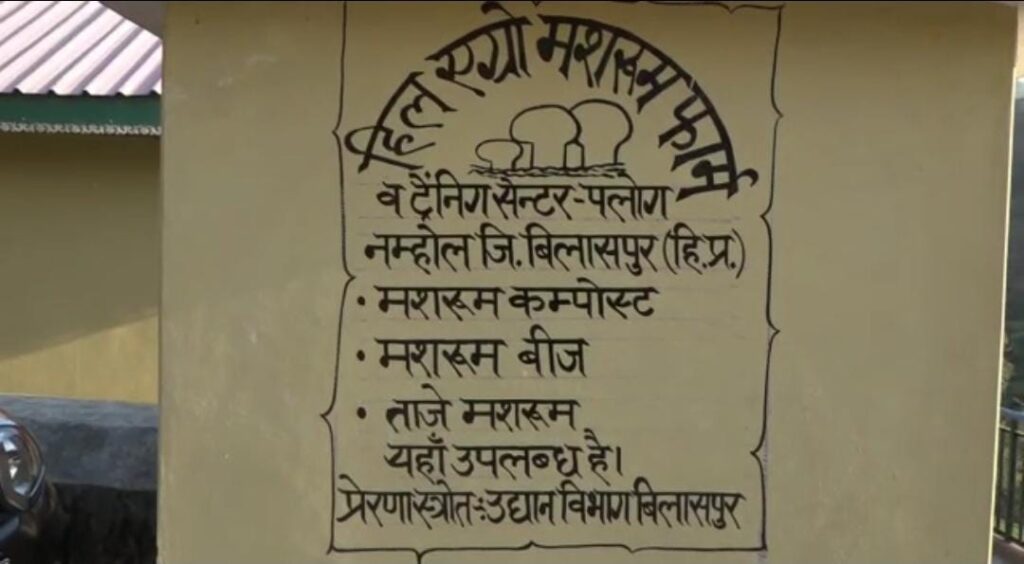 हिल एग्रो मशरूम फार्म
व ट्रैनिग सेन्टर-पलोग
नम्होल जि. बिलासपुर (हि.प्र.)
• मशरूम कम्पोस्ट
• मशरूम बीज
• ताजे मशरूम
यहाँ उपलब्ध है।
प्रेरणा स्त्रोत-:उद्यान विभाग बिलासपुर